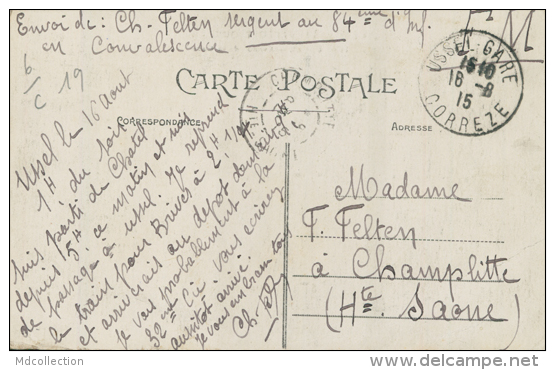 Envoi de : Ch. Felten sergent au 84ème d'Inf.
en Convalescence
F M
6/C 19
USSEL-GARE
1610
16-8
15
CORREZE
CARTE POSTALE
CORRESPONDANCE
ADRESSE
Ussel le 16 Aout
14 du soir
Suis parti de Chatel
depuis 15h. ce matin et suis
de passage à Ussel. Je reprend
le train pour Brives à 2h 1/4
et arriverais au dépot
je vais probablement à la
32me Cie vous écrirez
aussitot arrivé.
je vous embrasse tous
Ch.
Madame
F. Felten
à Champlitte
(Hte Saone)
Mdcollection
www.delcampe.net